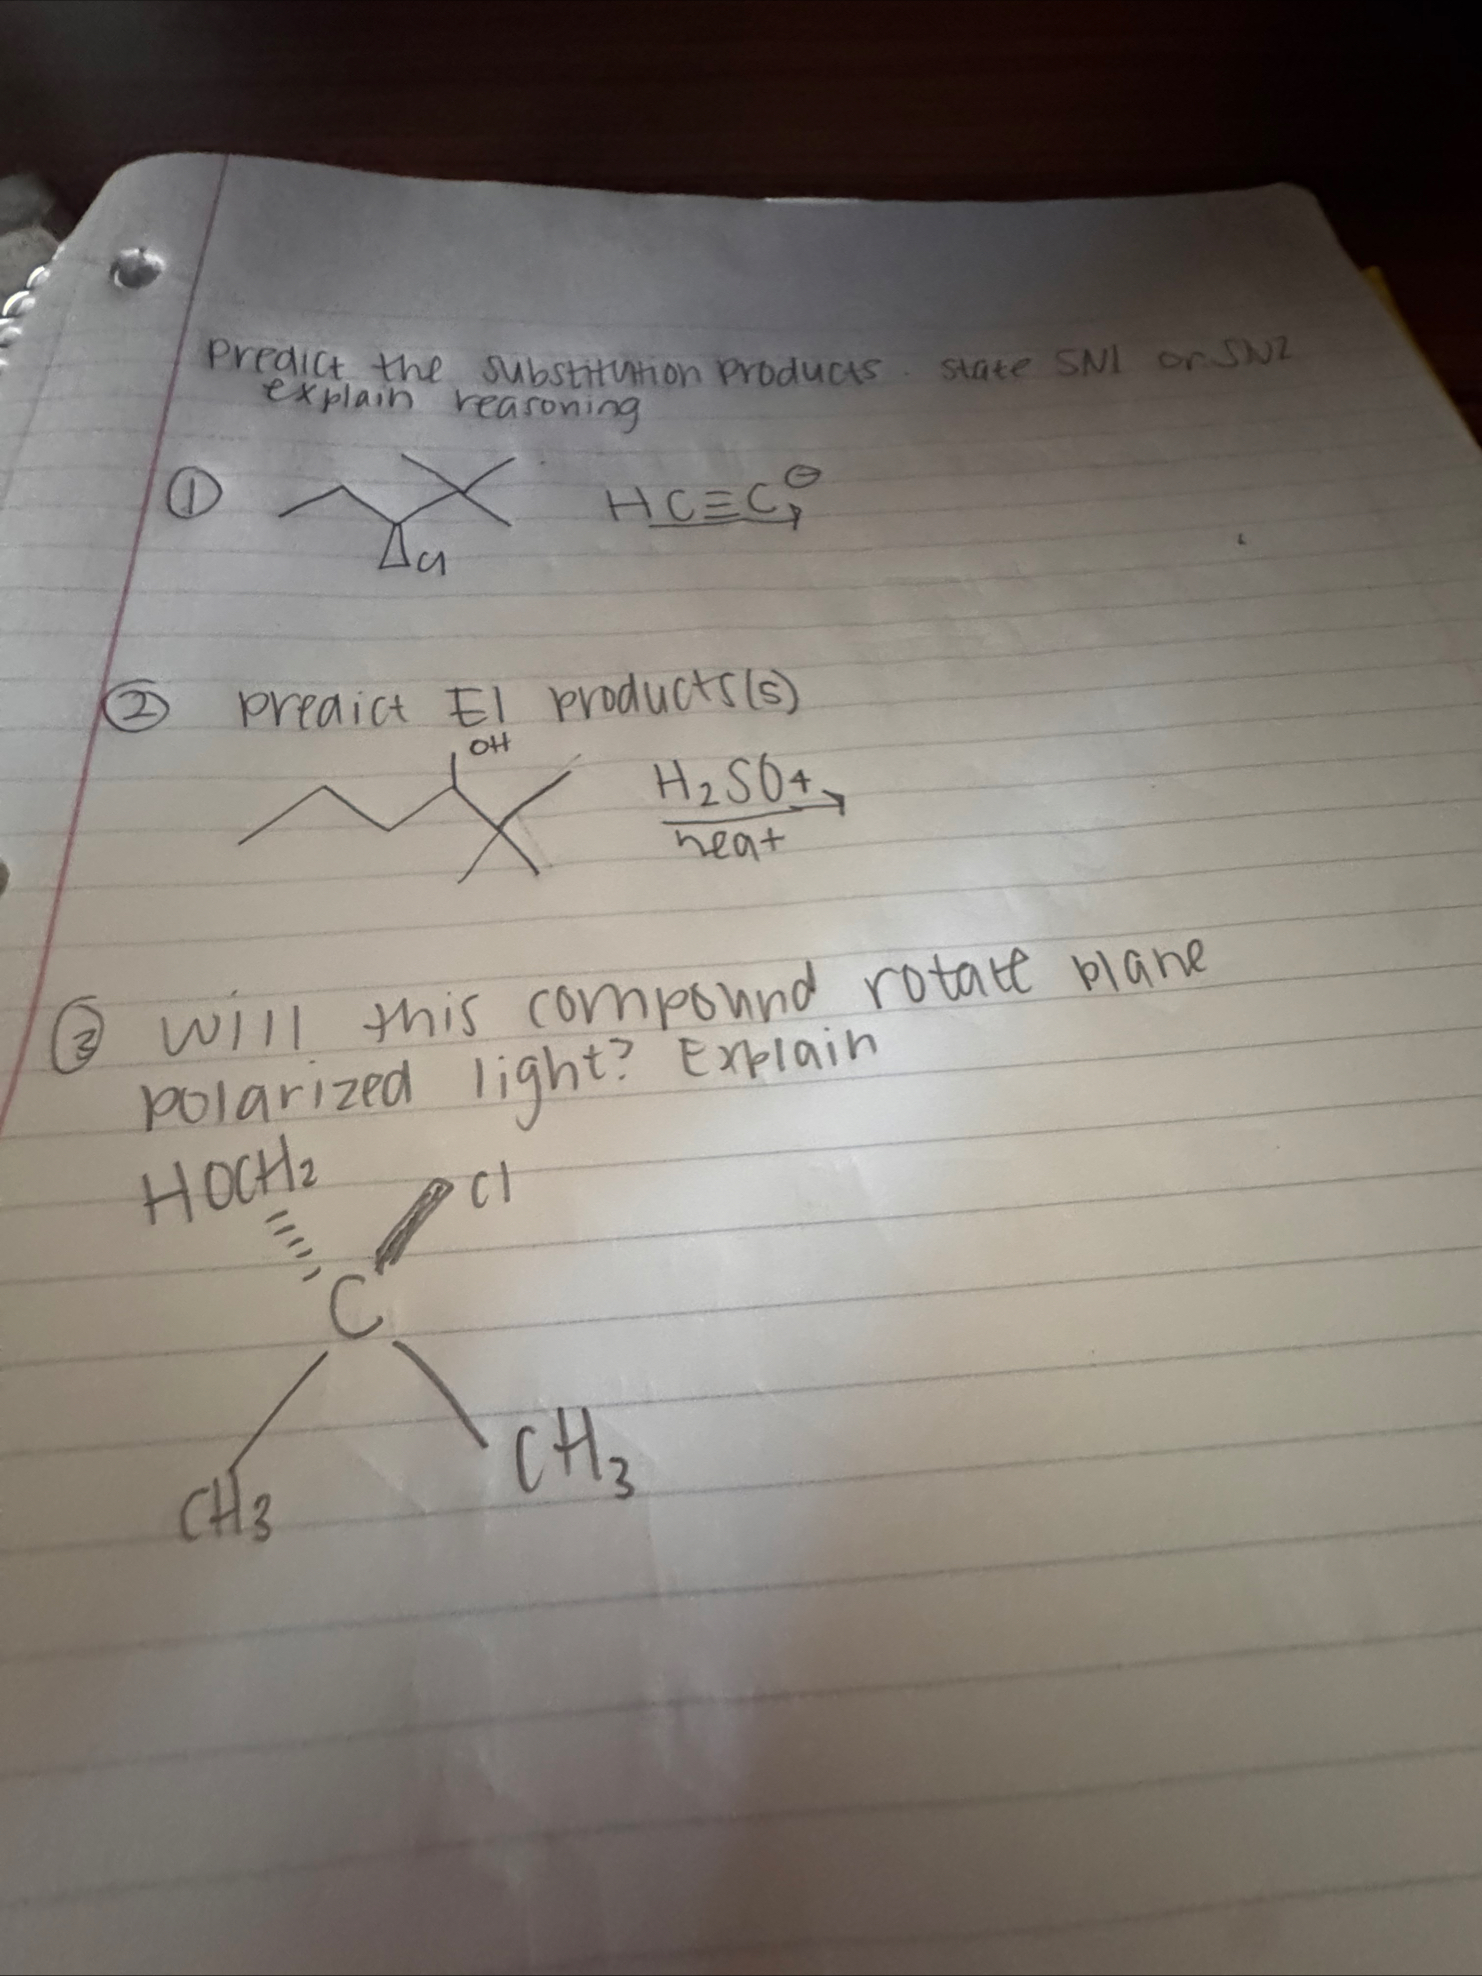 Predict the substitution products. state SN1 or SN2
explain reasoning
① Cl HC≡C⊖
② predict E1 products(s)
OH
H₂SO₄
heat
③ Will this compound rotate plane
polarized light? Explain
HOCH₂ Cl
C
CH₃ CH₃